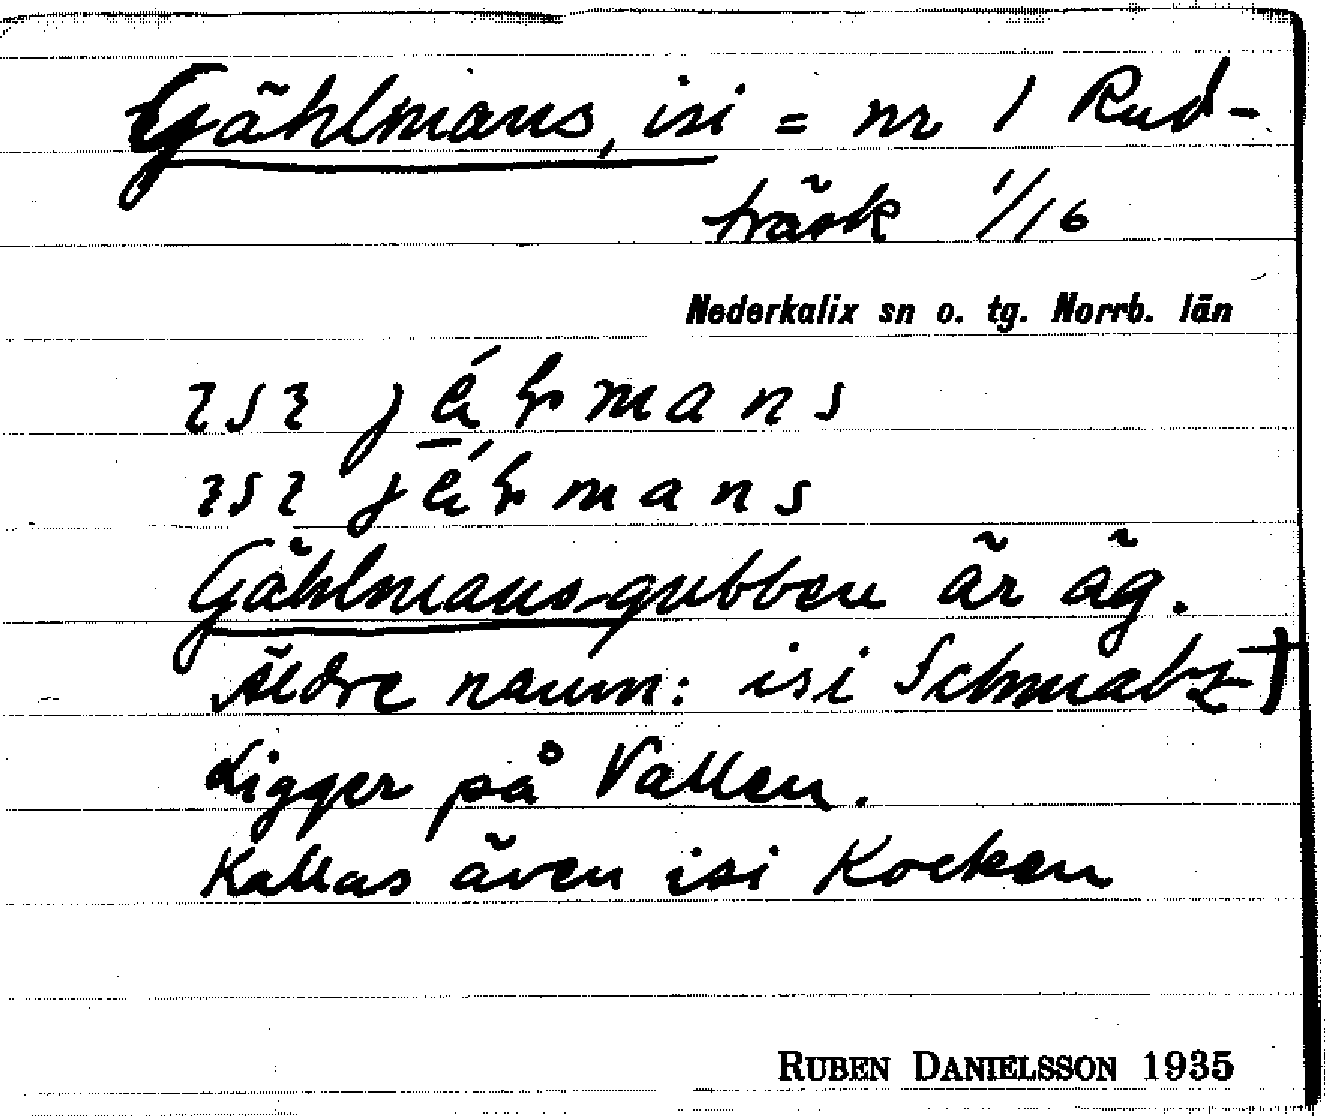 Gählmans, isi = nr 1 Rud-
träsk 1/16
Nederkalix sn o. tg. Norrb. län
ısı
ısı
Gählmans-gubben är äg.
Äldre namn: isi Schmatz)
Ligger på Vallen.
Kallas även isi Kocken
RUBEN DANIELSSON 1935